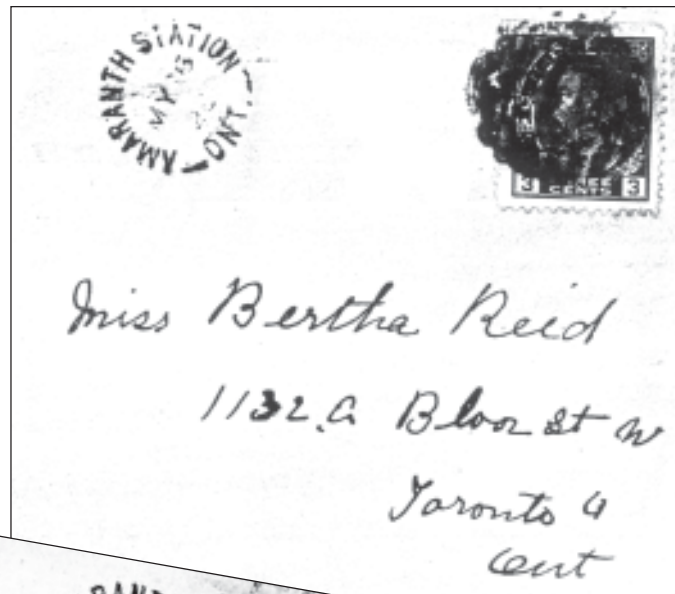 AMARANTH STATION ONT.
MY 15
3 THREE CENTS 3
Miss Bertha Reid
1132.A Bloor St W
Toronto 4
Ont